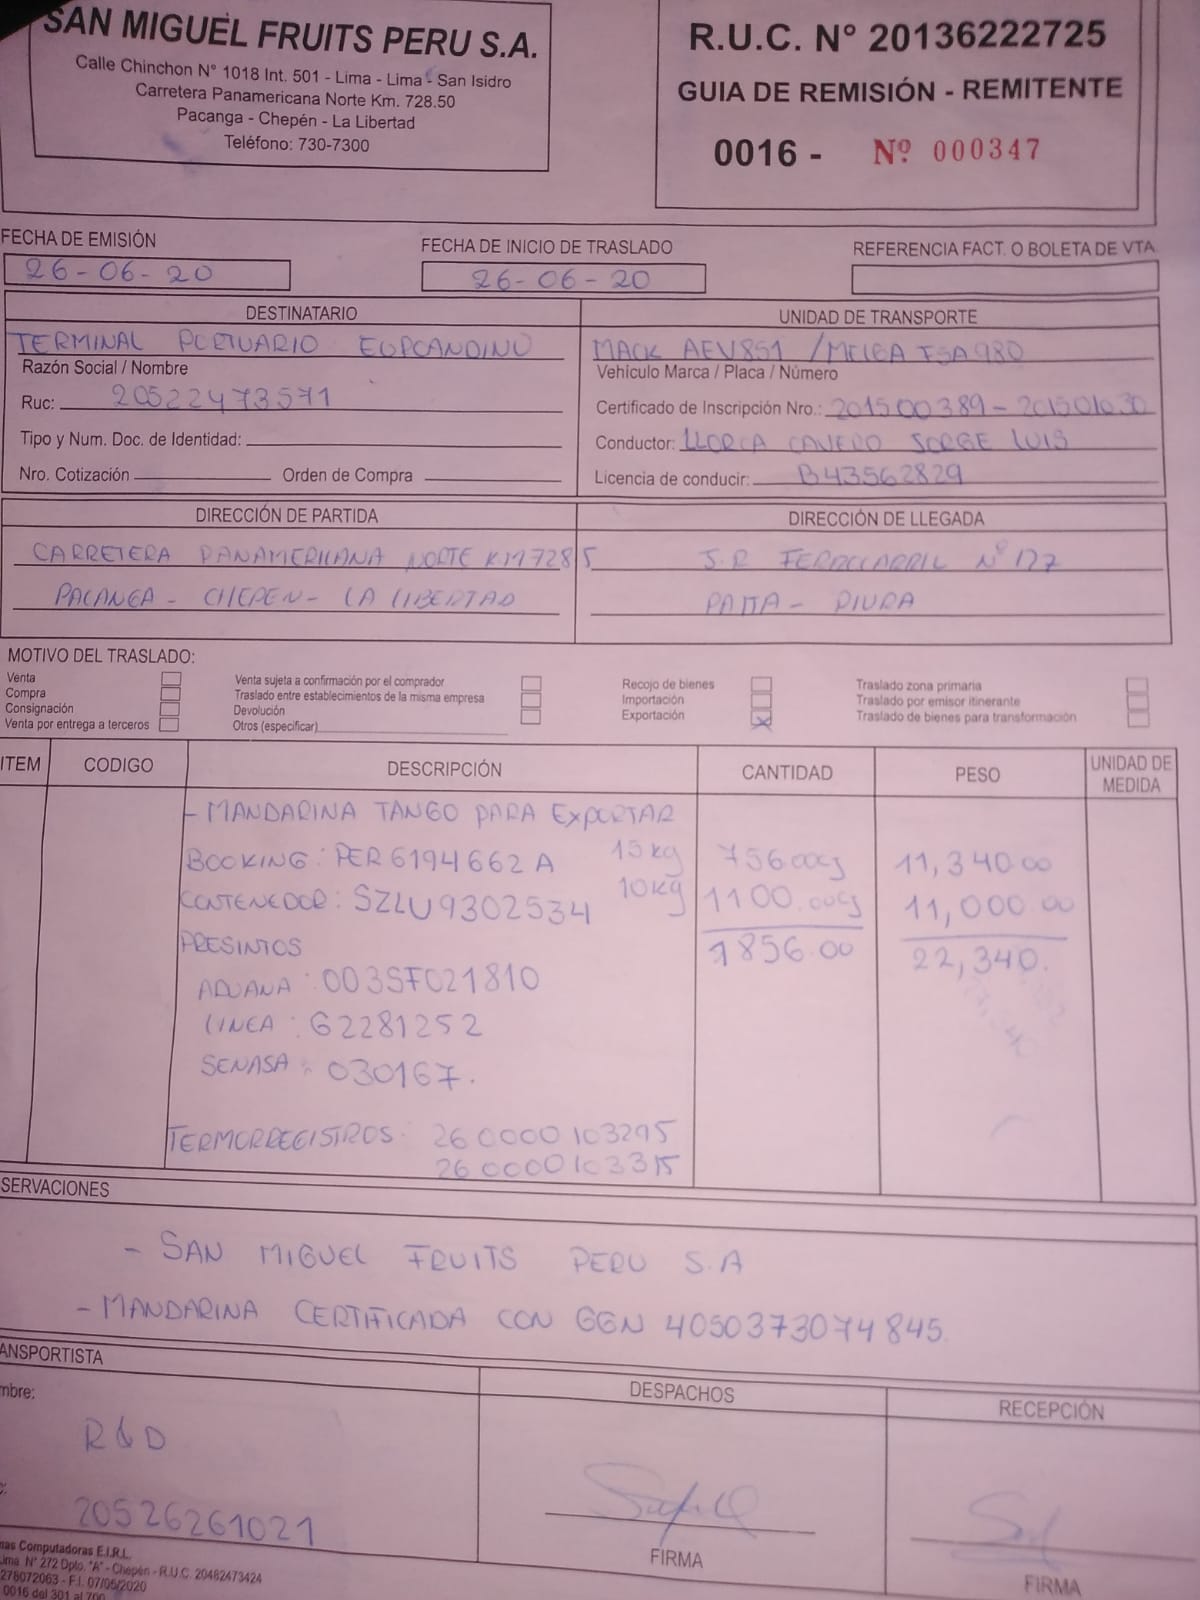 SAN MIGUEL FRUITS PERU S.A.
Calle Chinchon N° 1018 Int. 501 - Lima - Lima - San Isidro
Carretera Panamericana Norte Km. 728.50
Pacanga - Chepén - La Libertad
Teléfono: 730-7300
R.U.C. N° 20136222725
GUIA DE REMISIÓN - REMITENTE
0016 - Nº 000347
FECHA DE EMISIÓN
26-06-20
FECHA DE INICIO DE TRASLADO
26-06-20
REFERENCIA FACT. O BOLETA DE VTA.
DESTINATARIO
TERMINAL PORTUARIO EUROANDINO
Razón Social / Nombre
Ruc: 20522473571
Tipo y Num. Doc. de Identidad:
Nro. Cotización Orden de Compra
UNIDAD DE TRANSPORTE
MACK AEV851 / MELGA
Vehículo Marca / Placa / Número
Certificado de Inscripción Nro.: 201500389 -
Conductor: LLORCA CAVERO JORGE LUIS
Licencia de conducir: B43562829
DIRECCIÓN DE PARTIDA
CARRETERA PANAMERICANA NORTE KM 728 5
PACANGA - CHEPEN - LA LIBERTAD
DIRECCIÓN DE LLEGADA
J.R FERROCARRIL Nº 127
PAITA - PIURA
MOTIVO DEL TRASLADO:
Venta
Compra
Consignación
Venta por entrega a terceros
Venta sujeta a confirmación por el comprador
Traslado entre establecimientos de la misma empresa
Devolución
Otros (especificar)
Recojo de bienes
Importación
Exportación X
Traslado zona primaria
Traslado por emisor itinerante
Traslado de bienes para transformación
ITEM CODIGO DESCRIPCIÓN CANTIDAD PESO UNIDAD DE MEDIDA
- MANDARINA TANGO PARA EXPORTAR
BOOKING: PER6194662A 15 kg 756.00CJ 11,340.00
CONTENEDOR: SZLU9302534 10kg 1100.00CJ 11,000.00
PRESINTOS 1856.00 22,340.
ADUANA: 003SF021810
LINEA: G2281252
SENASA: 030167.
TERMORREGISTROS: 26 0000 103295
26 0000 103315
SERVACIONES
- SAN MIGUEL FRUITS PERU S.A
- MANDARINA CERTIFICADA CON GGN 4050373074845.
ANSPORTISTA
mbre:
R&D
20526261021
DESPACHOS
FIRMA
RECEPCIÓN
FIRMA
mas Computadoras E.I.R.L.
Lima N° 272 Dpto. "A" - Chepén - R.U.C. 20482473424
278072063 - F.I. 07/05/2020
0016 del 301 al 700